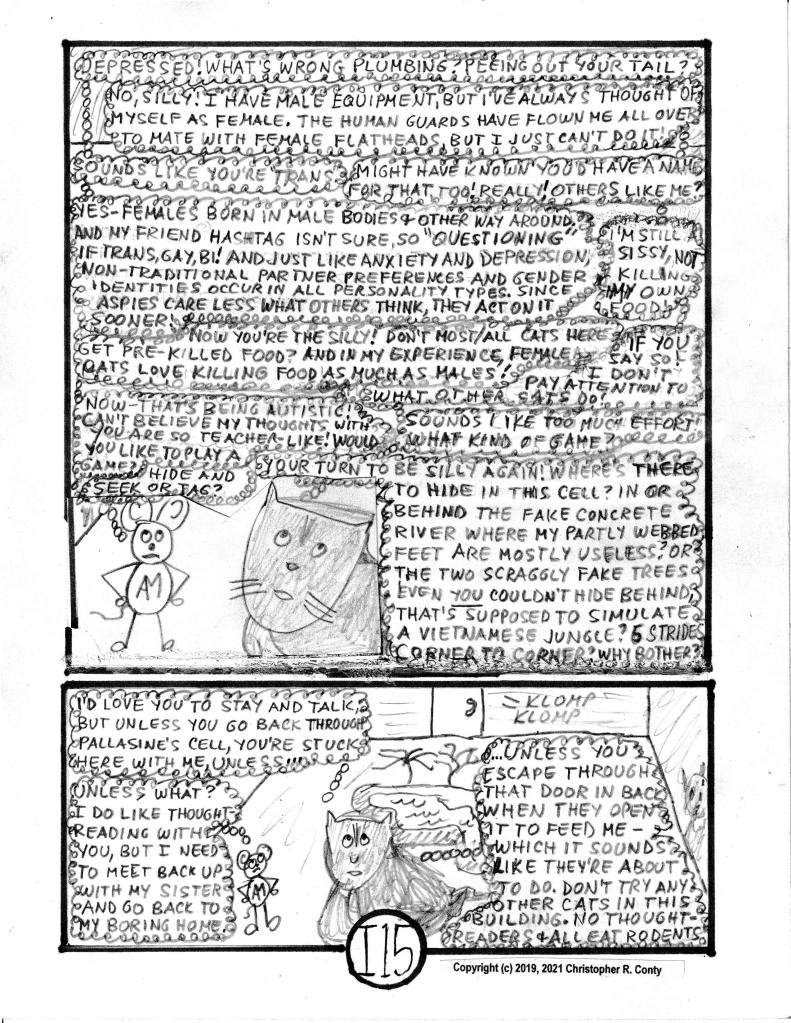 DEPRESSED! WHAT'S WRONG PLUMBING? PEEING OUT YOUR TAIL?
NO, SILLY! I HAVE MALE EQUIPMENT, BUT I'VE ALWAYS THOUGHT OF
MYSELF AS FEMALE. THE HUMAN GUARDS HAVE FLOWN ME ALL OVER
TO MATE WITH FEMALE FLATHEADS, BUT I JUST CAN'T DO IT!
SOUNDS LIKE YOU'RE TRANS
MIGHT HAVE KNOWN YOU'D HAVE A NAME
FOR THAT TOO! REALLY! OTHERS LIKE ME?
YES-FEMALES BORN IN MALE BODIES & OTHER WAY AROUND.
AND MY FRIEND HASHTAG ISN'T SURE, SO "QUESTIONING"
IF TRANS, GAY, BI! AND JUST LIKE ANXIETY AND DEPRESSION,
NON-TRADITIONAL PARTNER PREFERENCES AND GENDER
IDENTITIES OCCUR IN ALL PERSONALITY TYPES. SINCE
ASPIES CARE LESS WHAT OTHERS THINK, THEY ACT ON IT
SOONER!
I'M STILL A
SISSY, NOT
KILLING
MY OWN
FOOD!
NOW YOU'RE THE SILLY! DON'T MOST/ALL CATS HERE
GET PRE-KILLED FOOD? AND IN MY EXPERIENCE, FEMALE
CATS LOVE KILLING FOOD AS MUCH AS MALES!
IF YOU
SAY SO!
I DON'T
PAY ATTENTION TO
WHAT OTHER CATS DO!
NOW-THAT'S BEING AUTISTIC!
CAN'T BELIEVE MY THOUGHTS WITH
YOU ARE SO TEACHER-LIKE! WOULD
YOU LIKE TO PLAY A
GAME?
SOUNDS LIKE TOO MUCH EFFORT!
WHAT KIND OF GAME?
HIDE AND
SEEK OR TAG?
YOUR TURN TO BE SILLY AGAIN! WHERE'S THERE
TO HIDE IN THIS CELL? IN OR
BEHIND THE FAKE CONCRETE
RIVER WHERE MY PARTLY WEBBED
FEET ARE MOSTLY USELESS? OR
THE TWO SCRAGGLY FAKE TREES
EVEN YOU COULDN'T HIDE BEHIND,
THAT'S SUPPOSED TO SIMULATE
A VIETNAMESE JUNGLE? 5 STRIDES
CORNER TO CORNER? WHY BOTHER?
AM
I'D LOVE YOU TO STAY AND TALK,
BUT UNLESS YOU GO BACK THROUGH
PALLASINE'S CELL, YOU'RE STUCK
HERE WITH ME, UNLESS...
KLOMP
KLOMP
UNLESS WHAT?
I DO LIKE THOUGHT-
READING WITH
YOU, BUT I NEED
TO MEET BACK UP
WITH MY SISTER
AND GO BACK TO
MY BORING HOME.
AM
...UNLESS YOU
ESCAPE THROUGH
THAT DOOR IN BACK
WHEN THEY OPEN
IT TO FEED ME -
WHICH IT SOUNDS
LIKE THEY'RE ABOUT
TO DO. DON'T TRY ANY
OTHER CATS IN THIS
BUILDING. NO THOUGHT-
READERS & ALL EAT RODENTS.
I15
Copyright (c) 2019, 2021 Christopher R. Conty